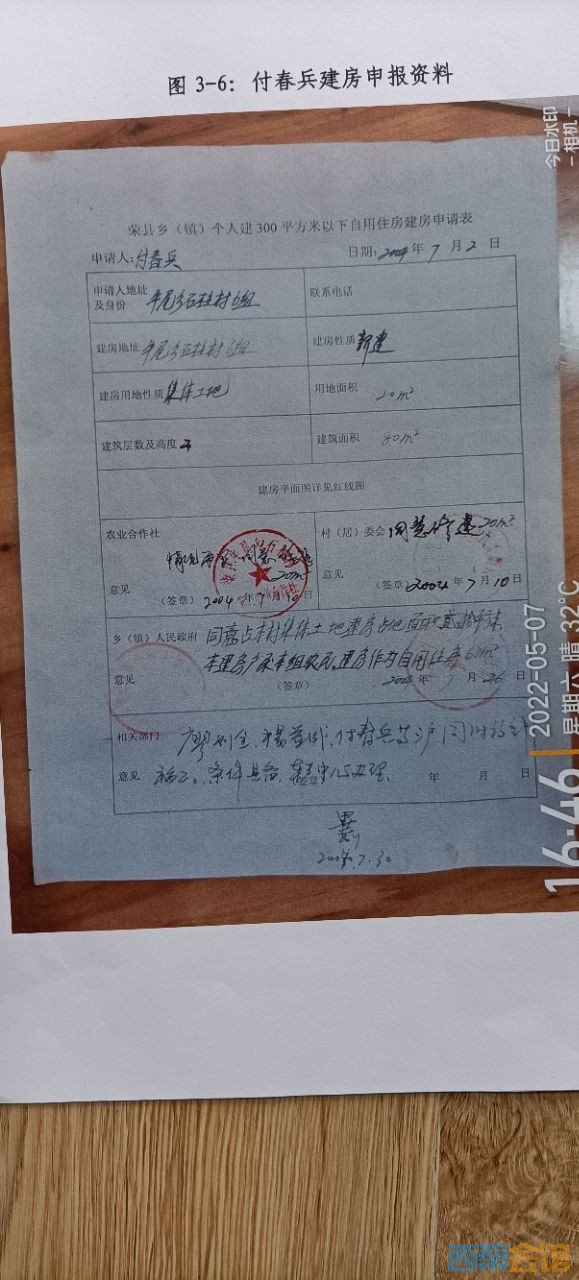 图 3-6：付春兵建房申报资料
荣县乡（镇）个人建300平方米以下自用住房建房申请表
申请人：付春兵 日期：2004年7月2日
申请人地址及身份 牟尾乡石柱村6组 联系电话
建房地址 牟尾乡石柱村6组 建房性质 新建
建房用地性质 集体土地 用地面积 20m²
建筑层数及高度 建筑面积 80m²
建房平面图详见红线图
农业合作社 村（居）委会 同意修建20m²
情况 同意 20m²
意见 意见
（签章）2004年7月10日 （签章）2004年7月10日
乡（镇）人民政府 同意占本村集体土地建房占地面积贰拾平米
本建房户系本组农民，建房作为自用住房
意见 （签章） 7月26日
相关部门 付春兵等户同时
意见 条件具备 办理 年 月 日
2004.7.30
今日水印
-相机-
16:46
2022-05-07
星期六 晴 32℃
西秦会馆